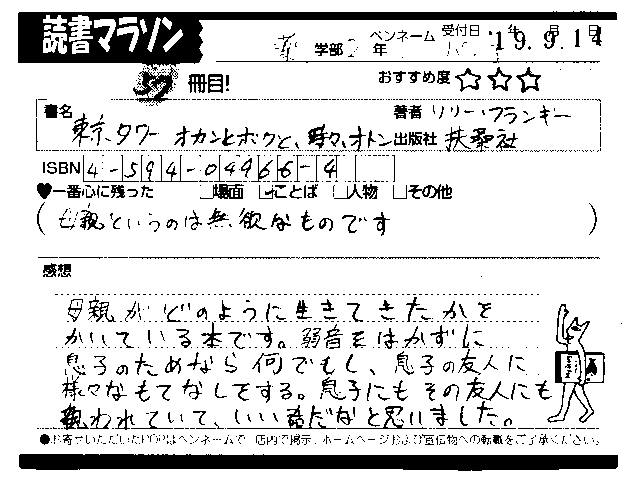 読書マラソン
薬 学部 2 年 ペンネーム 受付日 年 月 日
19.9.14
57 冊目! おすすめ度 ☆☆☆
書名 著者 リリー・フランキー
東京タワー オカンとボクと、時々、オトン 出版社 扶桑社
ISBN 4-594-04966-4
♥一番心に残った □場面 ☑ことば □人物 □その他
(母親というのは無欲なものです)
感想
母親がどのように生きてきたかを
かいている本です。弱音をはかずに
息子のためなら何でもし、息子の友人に
様々なもてなしをする。息子にもその友人にも
親われていて、いい話だなと思いました。
●お寄せいただいたPOPはペンネームで、店内で掲示、ホームページおよび宣伝物への転載をご了承ください。